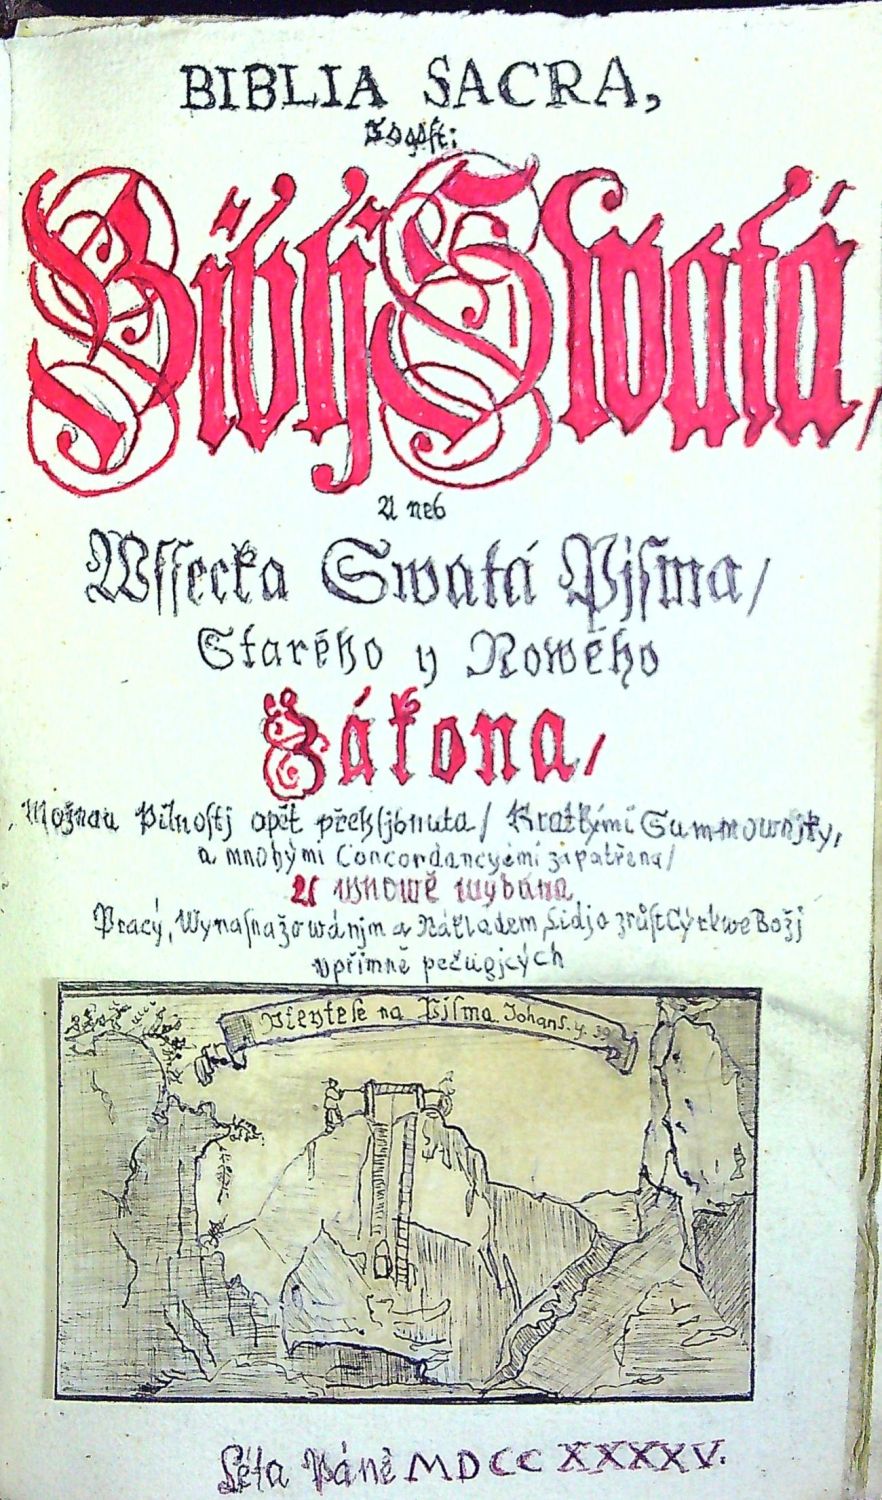 BIBLIA SACRA,
To gest:
Biblj Swatá,
A neb
Wssecka Swatá Pjsma/
Starého y Nowého
Zákona/
Možnau Pilnostj opět přehljdnuta/ Kratkými Summownjky,
a mnohými Concordancyemi zapatřena/
A wnowě wydána
Pracý, Wynasnažowánjm a Nákladem, Lidj o zrůst Cýrkwe Božj
vpřimně pečugjcých
Pteyte se na Pjsma. Johans. y. 39
Léta Páně MDCCXXXXV.